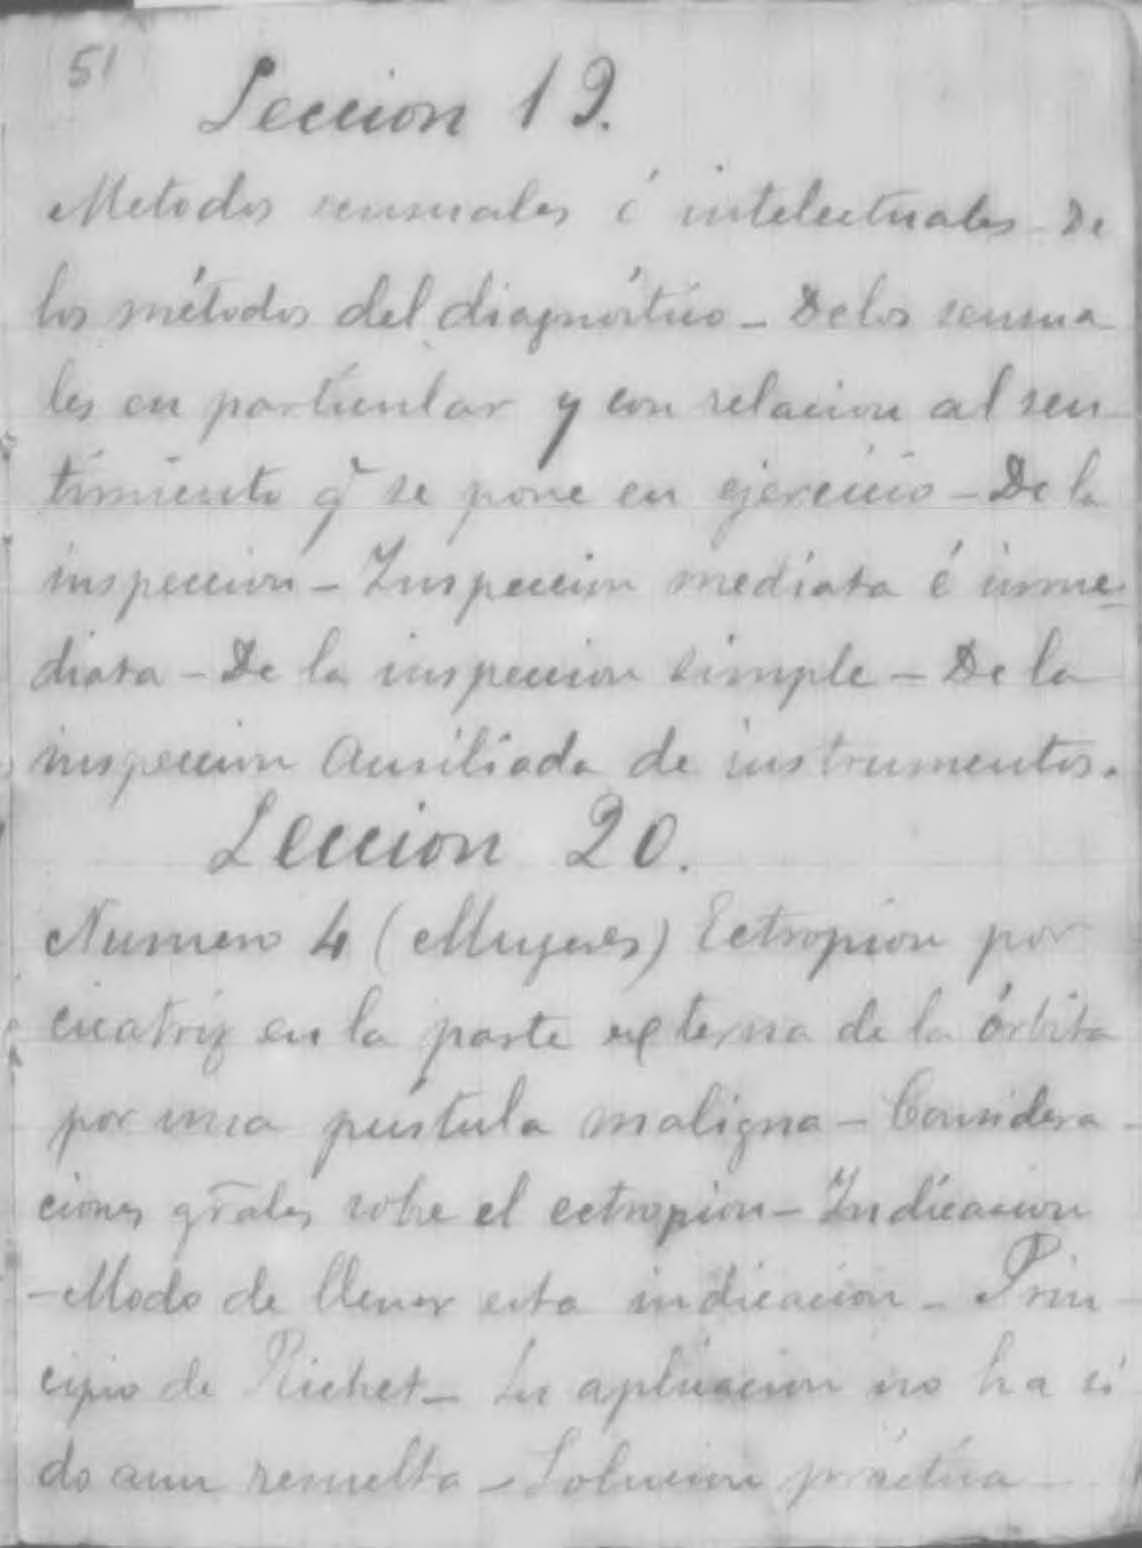 51
Leccion 19.
Metodos sensuales é intelectuales - De
los métodos del diagnóstico - De los sensua
les en particular y con relacion al sen
timiento q̃ se pone en ejercicio - De la
inspeccion - Inspeccion mediata é inme-
diata - De la inspeccion simple - De la
inspeccion Ausiliada de instrumentos.
Leccion 20.
Numero 4 (Mujeres) Ectropion por
cicatriz en la parte externa de la órbita
por una pústula maligna - Considera -
ciones grāles sobre el ectropion - Indicacion
- Modo de llenar esta indicacion - Prin -
cipio de Richet - Su aplicacion no ha si
do aun resuelta - Solucion práctica -